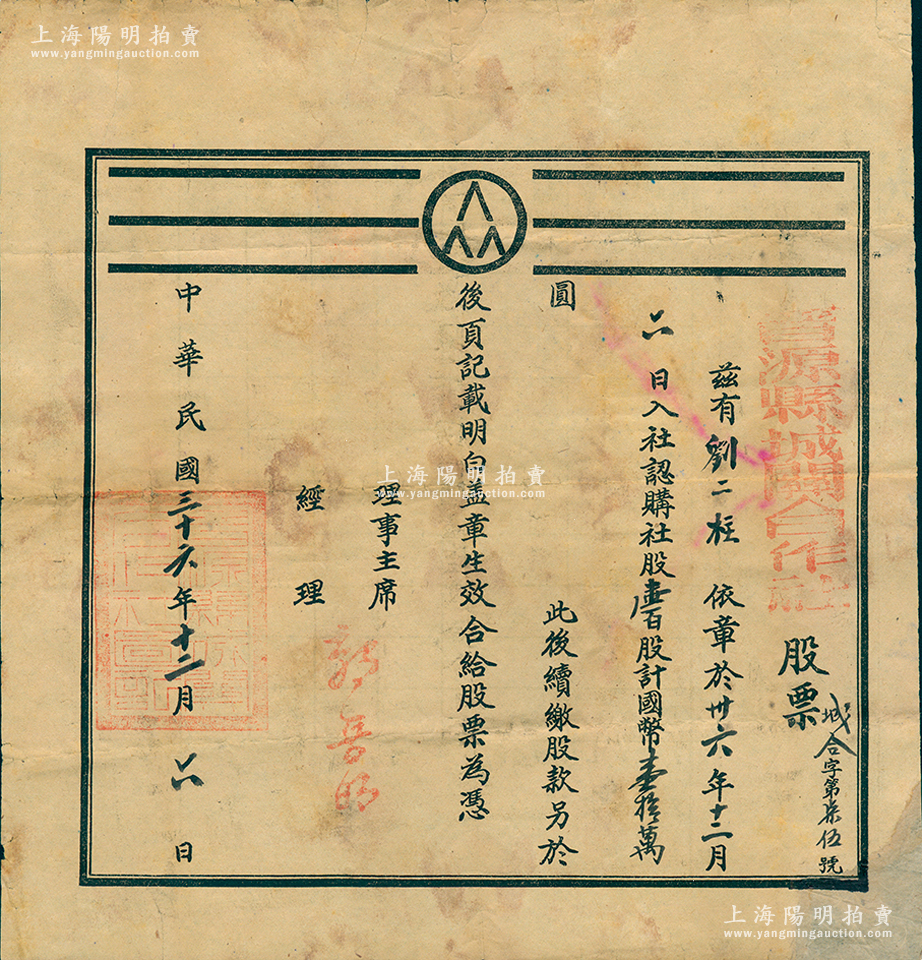 上海陽明拍賣
www.yangmingauction.com
縣城關合作社
股票
城合字第柒伍號
茲有劉二柱依章於卅六年十二月
六日入社認購社股壹百股計國幣壹拾萬
圓此後續繳股款另於
後頁記載明白蓋章生效合給股票為憑
理事主席
經理
中華民國三十六年十二月六日
上海陽明拍賣
www.yangmingauction.com
上海陽明拍賣
www.yangmingauction.com